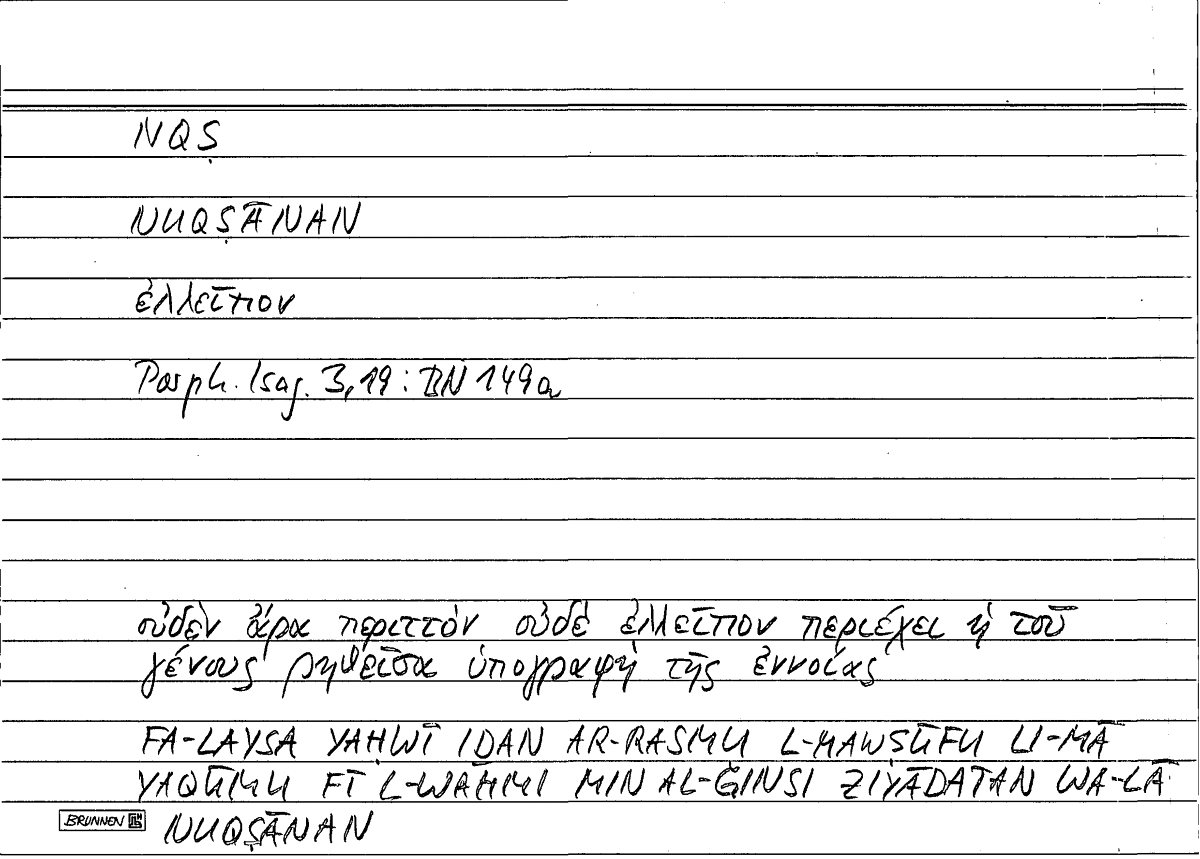 NQṢ
NUQṢĀNAN
ἐλλεῖπον
Porph. Isag. 3,19: BN 149a
οὐδὲν ἄρα περιττὸν οὐδὲ ἐλλεῖπον περιέχει ἡ τοῦ
γένους ῥηθεῖσα ὑπογραφὴ τῆς ἐννοίας
FA-LAYSA YAḤWĪ IḎAN AR-RASMU L-MAWṢŪFU LI-MĀ
YAQŪMU FĪ L-WAHMI MIN AL-ǦINSI ZIYĀDATAN WA-LĀ
NUQṢĀNAN
BRUNNEN